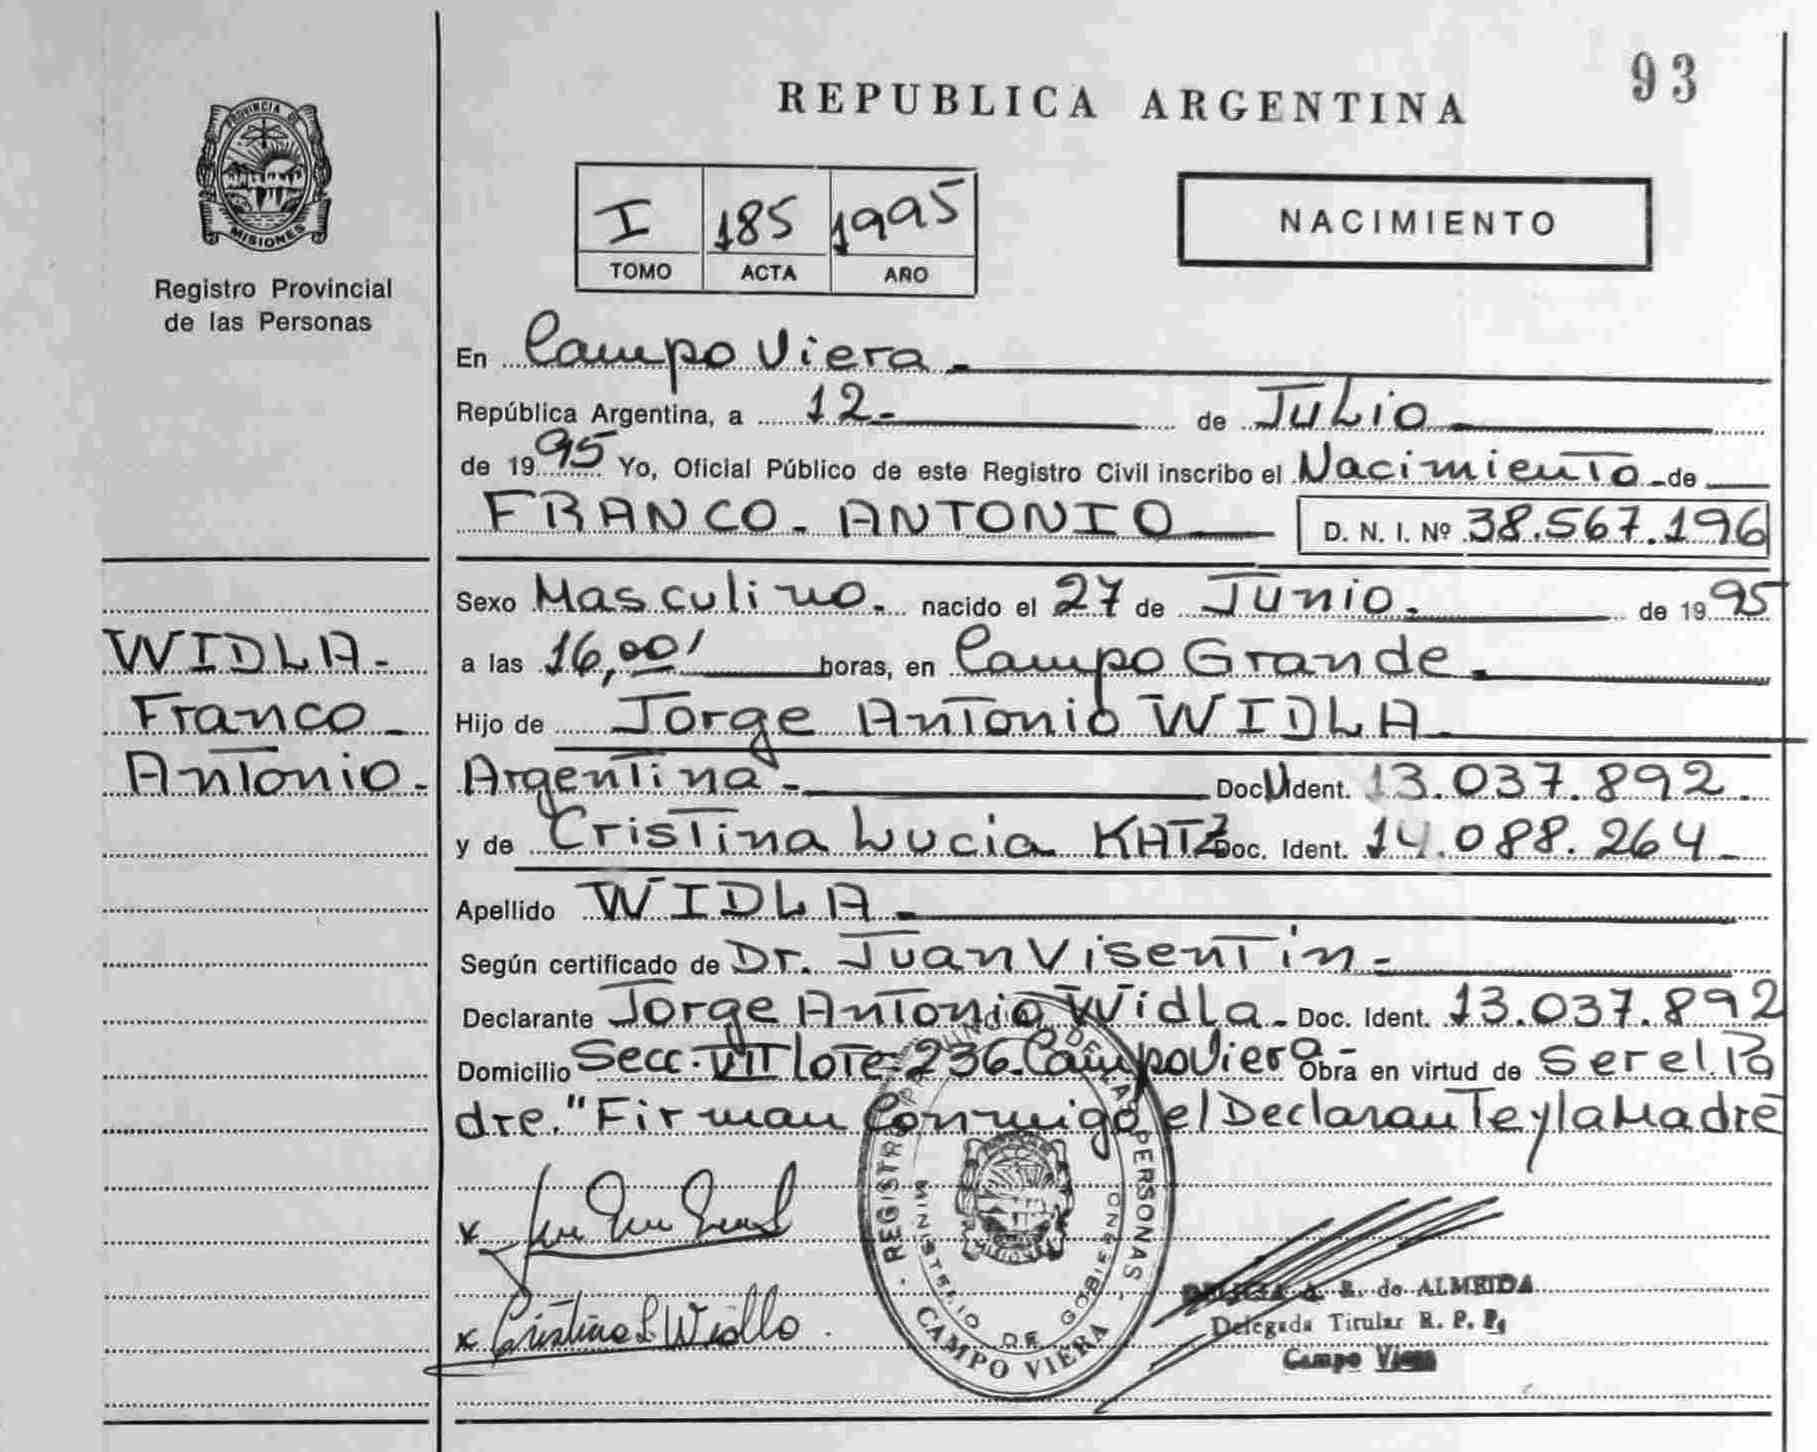 93
REPUBLICA ARGENTINA
PROVINCIA DE
MISIONES
Registro Provincial
de las Personas
I 185 1995
TOMO ACTA AÑO
NACIMIENTO
En Campo Viera
República Argentina, a 12 de Julio
de 1995 Yo, Oficial Público de este Registro Civil inscribo el Nacimiento de
FRANCO ANTONIO D. N. I. Nº 38.567.196
Sexo Masculino. nacido el 27 de Junio. de 1995
a las 16,00' horas, en Campo Grande
Hijo de Jorge Antonio WIDLA
Argentina Doc. Ident. 13.037.892
y de Cristina Lucia KATZ Doc. Ident. 14.088.264
Apellido WIDLA
Según certificado de Dr. Juan Visentin
Declarante Jorge Antonio Widla Doc. Ident. 13.037.892
Domicilio Secc. VII lote 236 Campo Viera Obra en virtud de Ser el Pa
dre." Firman Conmigo el Declarante y la Madre
WIDLA
Franco
Antonio
x
x Cristina L Widla
REGISTRO PROVINCIAL DE LAS PERSONAS
MINISTERIO DE GOBIERNO
MISIONES
CAMPO VIERA
R. de ALMEIDA
Delegada Titular R. P. P.
Campo Viera